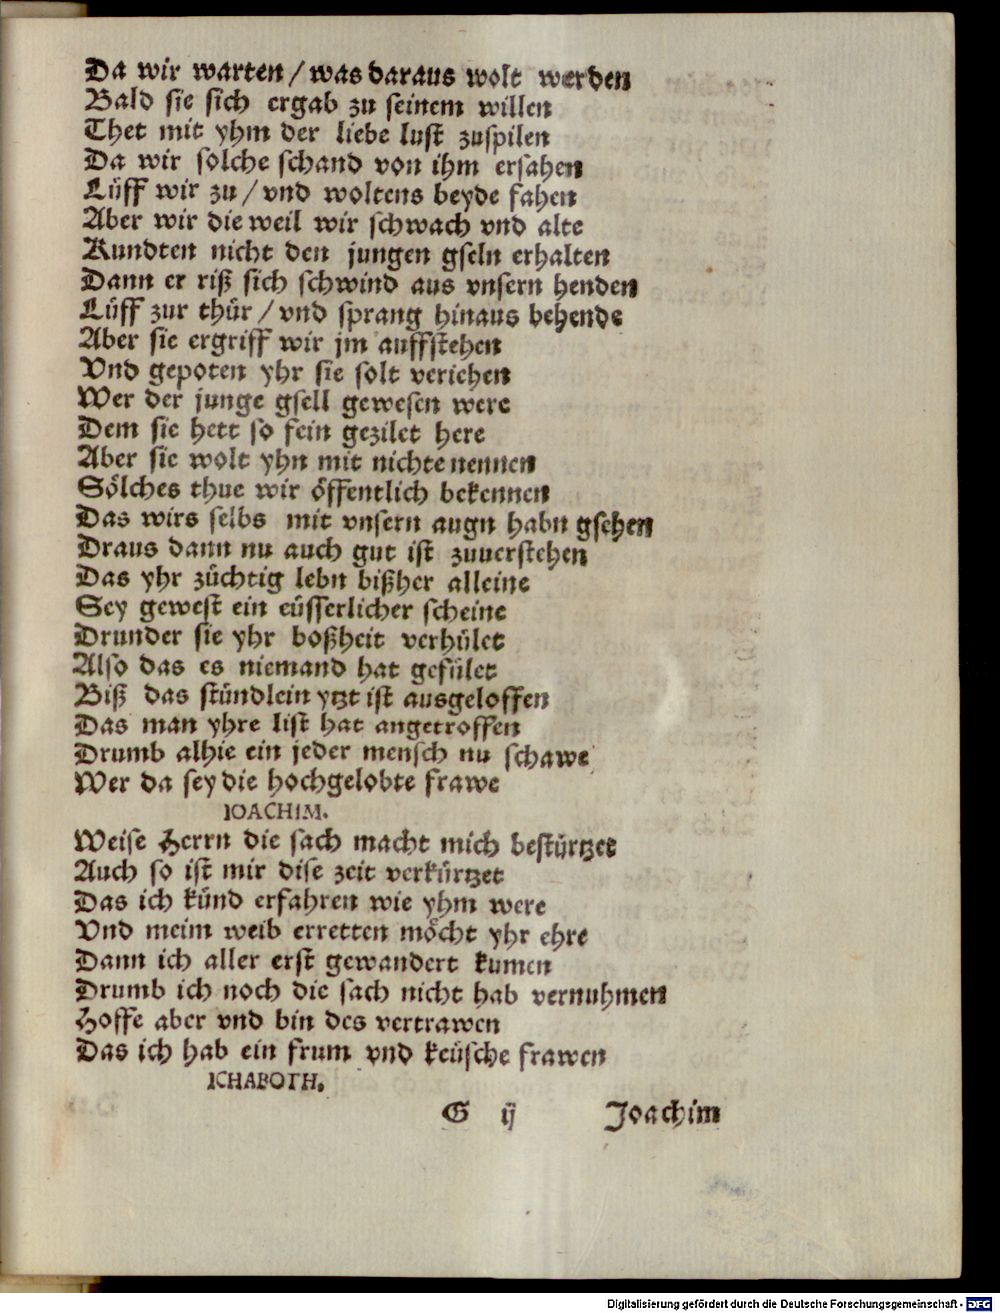 Da wir warten / was daraus wolt werden
Bald sie sich ergab zu seinem willen
Thet mit yhm der liebe lust zuspilen
Da wir solche schand von ihm ersahen
Lüff wir zu / vnd woltens beyde fahen
Aber wir die weil wir schwach vnd alte
Kundten nicht den jungen gseln erhalten
Dann er riß sich schwind aus vnsern henden
Lüff zur thür / vnd sprang hinaus behende
Aber sie ergriff wir jm auffstehen
Vnd gepoten yhr sie solt veriehen
Wer der junge gsell gewesen were
Dem sie hett so fein gezilet here
Aber sie wolt yhn mit nichte nennen
Sölches thue wir öffentlich bekennen
Das wirs selbs mit vnsern augn habn gsehen
Draus dann nu auch gut ist zuuerstehen
Das yhr züchtig lebn bißher alleine
Sey gewest ein eüsserlicher scheine
Drunder sie yhr boßheit verhület
Also das es niemand hat gefület
Biß das stündlein ytzt ist ausgeloffen
Das man yhre list hat angetroffen
Drumb alhie ein jeder mensch nu schawe
Wer da sey die hochgelobte frawe
IOACHIM.
Weise Herrn die sach macht mich bestürtzet
Auch so ist mir dise zeit verkürtzet
Das ich künd erfahren wie yhm were
Vnd meim weib erretten möcht yhr ehre
Dann ich aller erst gewandert kumen
Drumb ich noch die sach nicht hab vernuhmen
Hoffe aber vnd bin des vertrawen
Das ich hab ein frum vnd keüsche frawen
ICHABOTH.
G ij Joachim
Digitalisierung gefördert durch die Deutsche Forschungsgemeinschaft - DFG